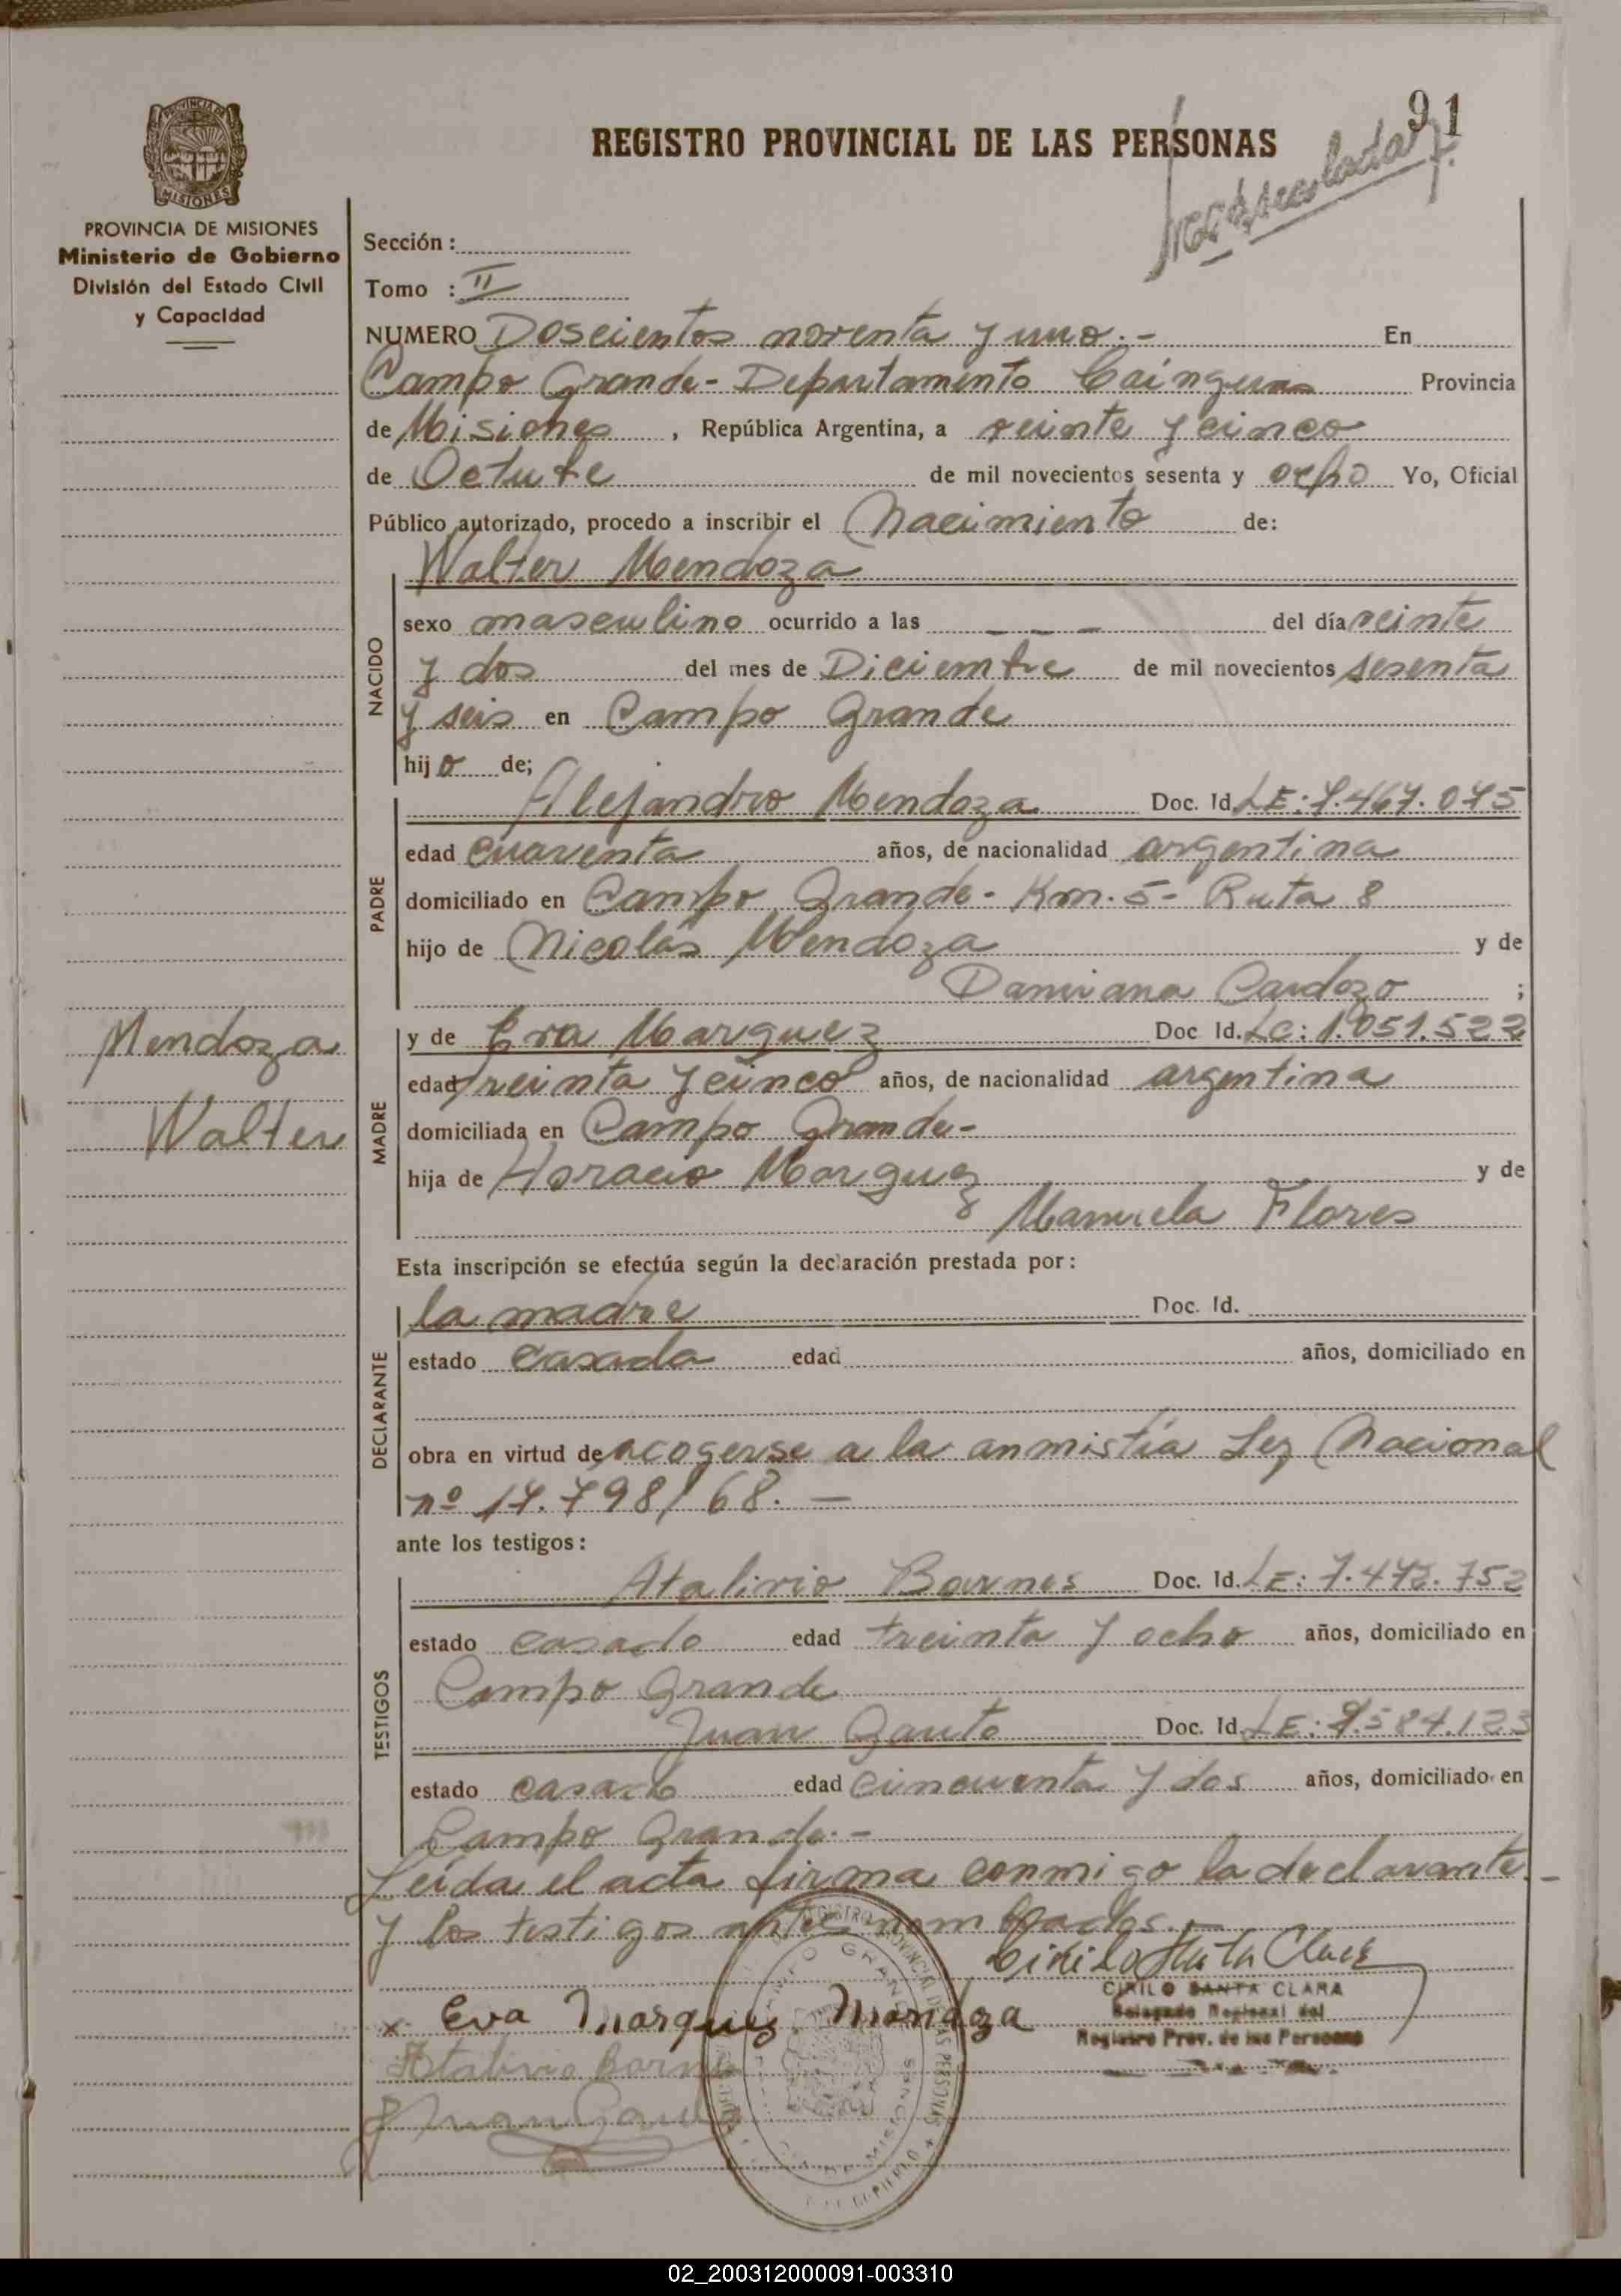 91
REGISTRO PROVINCIAL DE LAS PERSONAS
PROVINCIA DE MISIONES
Ministerio de Gobierno
División del Estado Civil
y Capacidad
Sección :
Tomo : II
NUMERO Doscientos noventa y uno.- En
Campo Grande- Departamento Cainguas Provincia
de Misiones, República Argentina, a veinte y cinco
de Octubre de mil novecientos sesenta y ocho Yo, Oficial
Público autorizado, procedo a inscribir el Nacimiento de:
Walter Mendoza
NACIDO
sexo masculino ocurrido a las _ _ _ del día veinte
y dos del mes de Diciembre de mil novecientos sesenta
y seis en Campo Grande
hijo de;
PADRE
Alejandro Mendoza Doc. Id. LE: 7.467.075
edad cuarenta años, de nacionalidad argentina
domiciliado en Campo Grande- Km. 5- Ruta 8
hijo de Nicolás Mendoza y de
Damiana Cardozo ;
Mendoza
Walter
MADRE
y de Eva Marquez Doc Id. LC: 1.051.522
edad treinta y cinco años, de nacionalidad argentina
domiciliada en Campo Grande-
hija de Horacio Marquez y de
Manuela Flores
Esta inscripción se efectúa según la declaración prestada por:
DECLARANTE
la madre Doc. Id.
estado casada edad años, domiciliado en
obra en virtud de acogerse a la anmistía Ley Nacional
nº 17.798/68.-
ante los testigos:
TESTIGOS
Atalivio Barnes Doc. Id. LE: 7.473.752
estado casado edad treinta y ocho años, domiciliado en
Campo Grande
Juan Gauto Doc. Id. LE: 584.123
estado casado edad cincuenta y dos años, domiciliado en
Campo Grande.-
Leída el acta firma conmigo la declarante.-
y los testigos antes nombrados.-
Cirilo Santa Clara
CIRILO SANTA CLARA
Delegado Regional del
Registro Prov. de las Personas
x Eva Marquez Mendoza
Atalivio Barnes
Juan Gauto
02_200312000091-003310